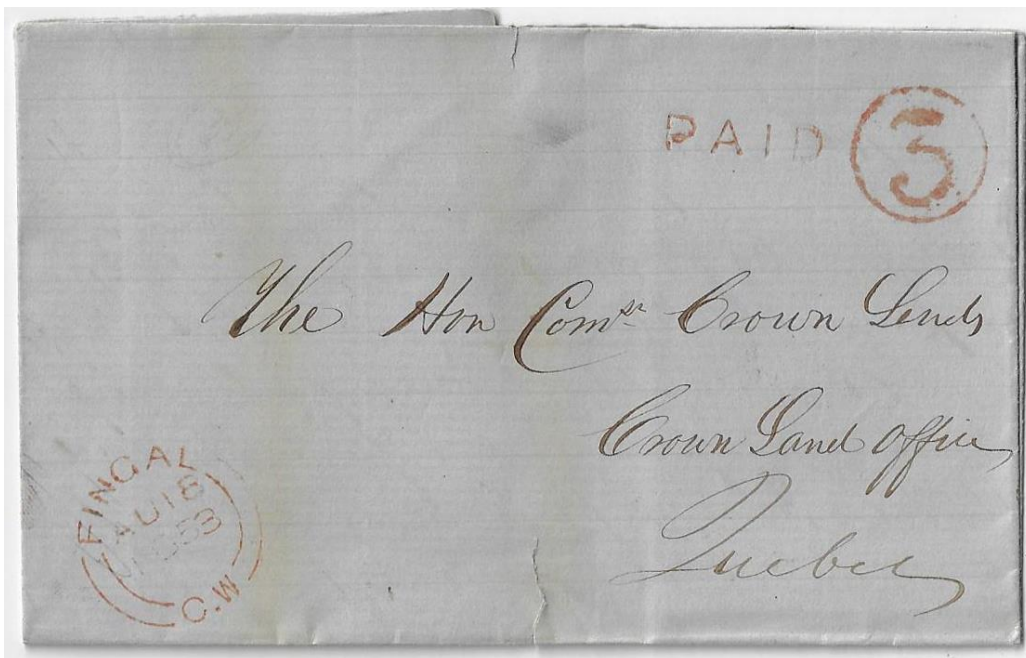 PAID 3
The Hon Comsr Crown Lands
Crown Land Office
Quebec
FINGAL
AU 18
1853
C.W